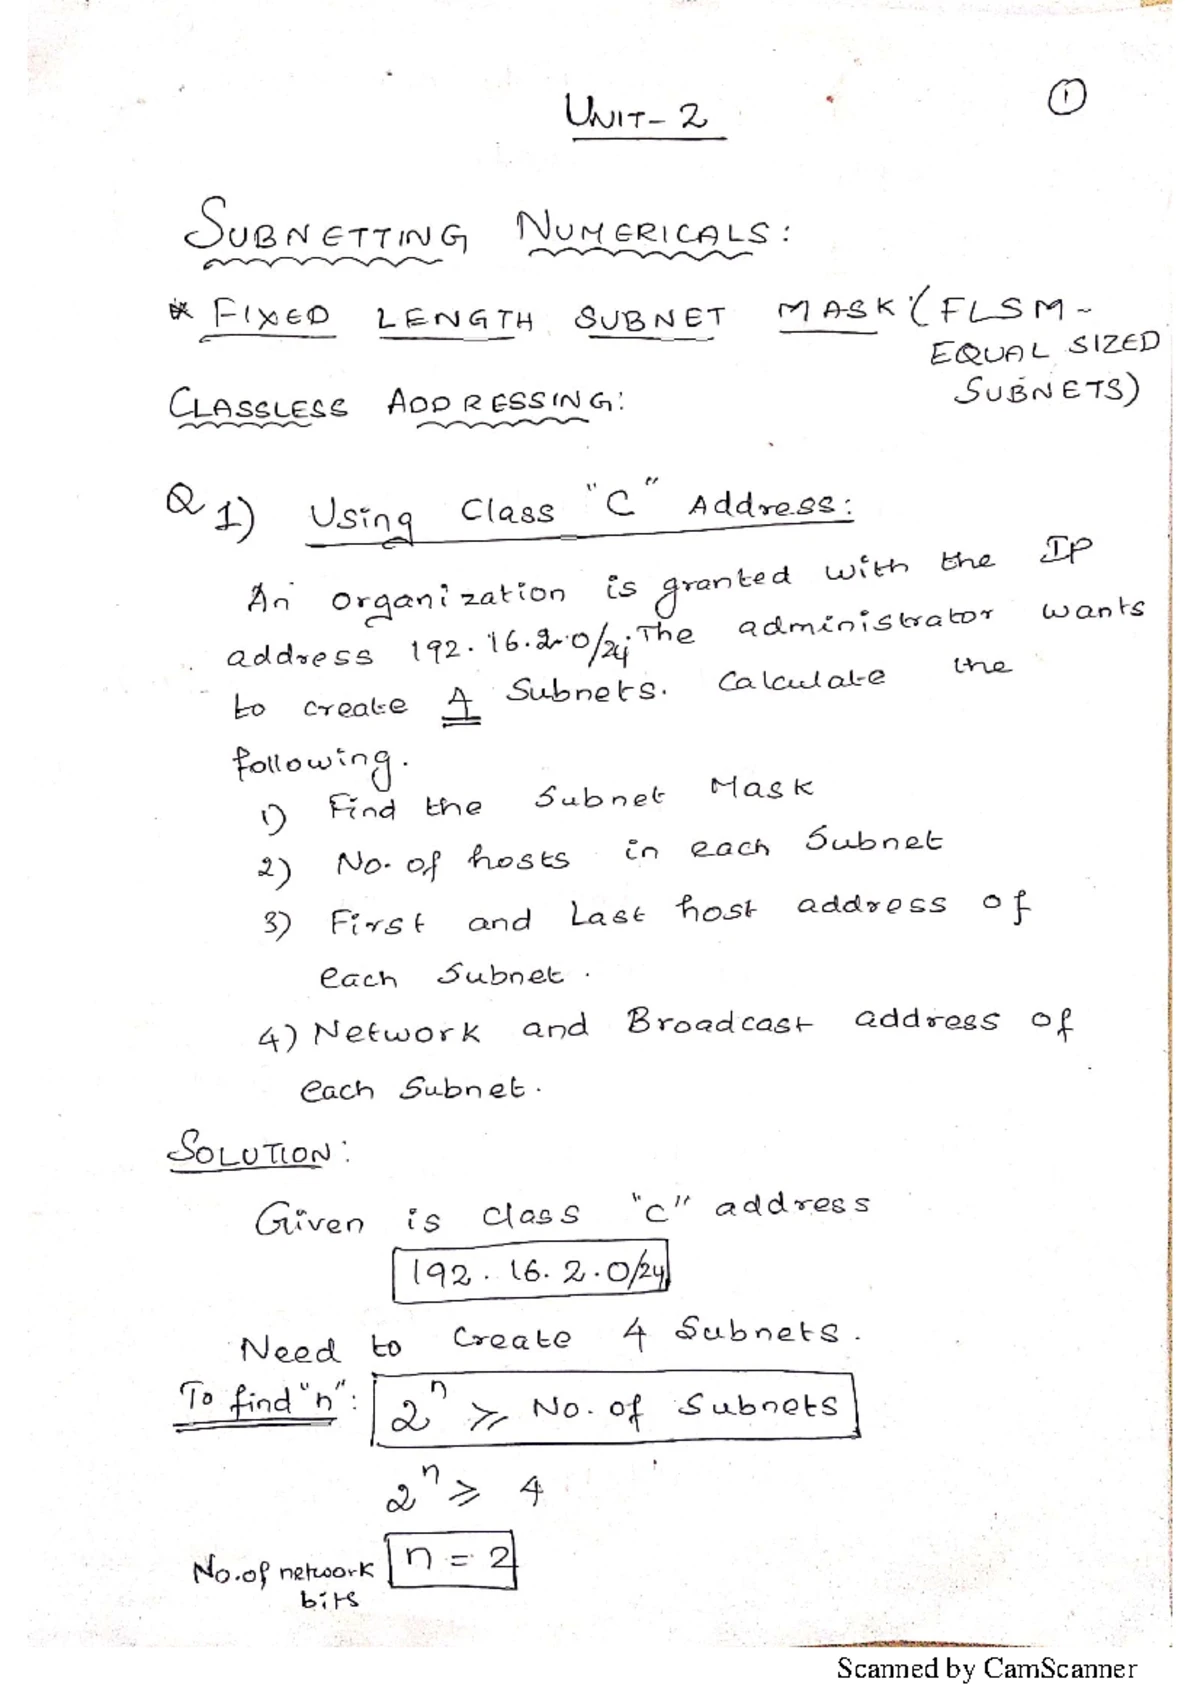 1
UNIT-2
SUBNETTING NUMERICALS:
* FIXED LENGTH SUBNET MASK (FLSM-
EQUAL SIZED
SUBNETS)
CLASSLESS ADDRESSING:
Q 1) Using Class "C" Address:
An organization is granted with the IP
address 192.16.2.0/24. The administrator wants
to create 4 Subnets. Calculate the
following.
1) Find the Subnet Mask
2) No. of hosts in each Subnet
3) First and Last host address of
each Subnet.
4) Network and Broadcast address of
each Subnet.
SOLUTION:
Given is class "C" address
192.16.2.0/24
Need to Create 4 Subnets.
To find "n": 2ⁿ ⩾ No. of Subnets
2ⁿ ⩾ 4
No. of network n = 2
bits
Scanned by CamScanner